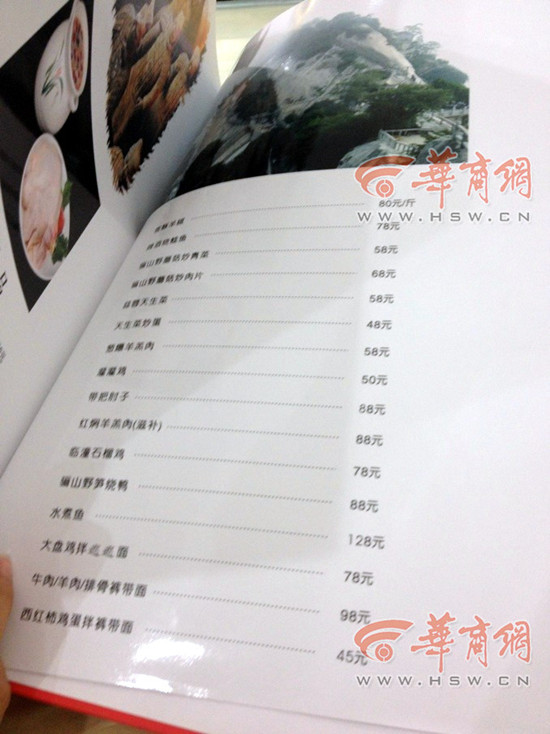 華商網
WWW.HSW.CN
80元/斤
78元
骊山野蘑菇炒青菜 58元
骊山野蘑菇炒肉片 68元
天生菜 58元
天生菜炒蛋 48元
葱爆羊羔肉 58元
鸡 50元
带把肘子 88元
红焖羊羔肉(滋补) 88元
临潼石榴鸡 78元
骊山野笋烧鸭 88元
水煮鱼 128元
大盘鸡拌 面 78元
牛肉/羊肉/排骨裤带面 98元
西红柿鸡蛋拌裤带面 45元
華商網
WWW.HSW.CN